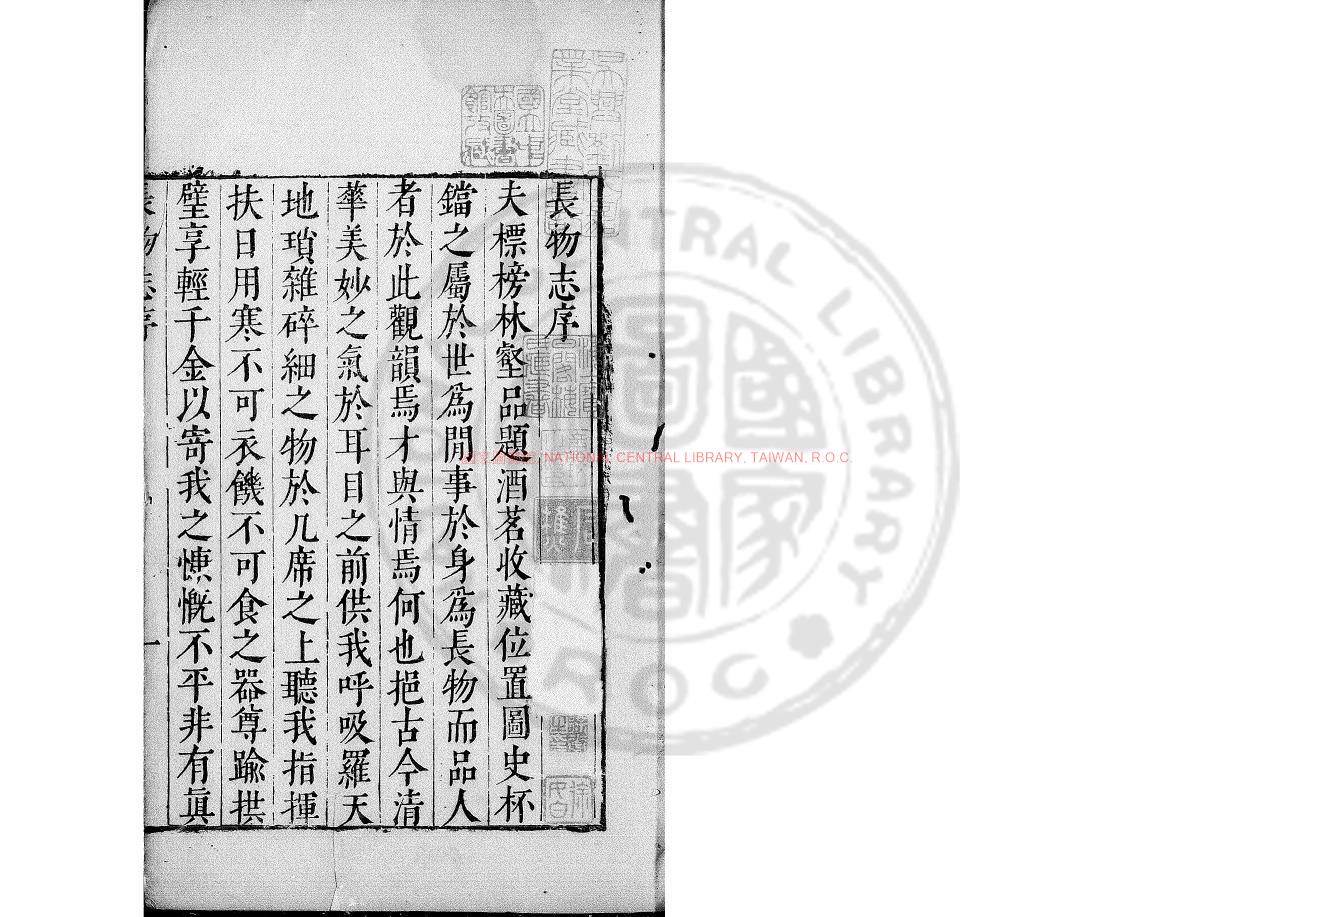 長物志序
夫標榜林壑品題酒茗收藏位置圖史杯
鐺之屬於世爲閒事於身爲長物而品人
者於此觀韻焉才與情焉何也挹古今清
華美妙之氣於耳目之前供我呼吸羅天
地瑣雜碎細之物於几席之上聽我指揮
扶日用寒不可衣饑不可食之器尊踰拱
璧享輕千金以寄我之慷慨不平非有眞
長物志序
一
NATIONAL CENTRAL LIBRARY, TAIWAN, R.O.C.
CENTRAL LIBRARY
ROC
國家圖書